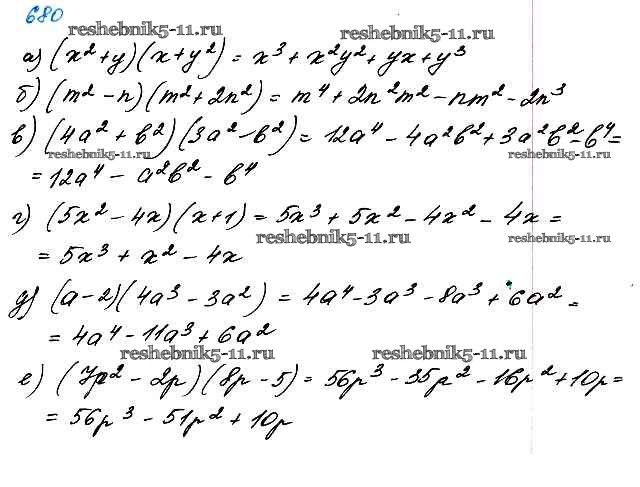 680
reshebnik5-11.ru reshebnik5-11.ru
а) (x² + y)(x + y²) = x³ + x²y² + yx + y³
б) (m² - n)(m² + 2n²) = m⁴ + 2n²m² - nm² - 2n³
в) (4a² + b²)(3a² - b²) = 12a⁴ - 4a²b² + 3a²b² - b⁴ =
reshebnik5-11.ru reshebnik5-11.ru
= 12a⁴ - a²b² - b⁴
г) (5x² - 4x)(x + 1) = 5x³ + 5x² - 4x² - 4x =
reshebnik5-11.ru reshebnik5-11.ru
= 5x³ + x² - 4x
д) (a - 2)(4a³ - 3a²) = 4a⁴ - 3a³ - 8a³ + 6a² =
= 4a⁴ - 11a³ + 6a²
reshebnik5-11.ru reshebnik5-11.ru
е) (7p² - 2p)(8p - 5) = 56p³ - 35p² - 16p² + 10p =
= 56p³ - 51p² + 10p